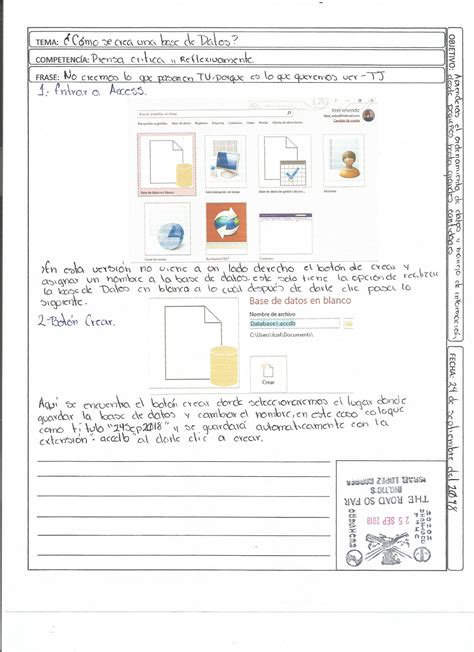 TEMA: ¿Cómo se crea una base de Datos?
COMPETENCIA: Piensa critica y Reflexivamente
FRASE: No creemos lo que pasan en TV, porque es lo que queremos ver - TJ
1.- Entrar a Access.
Itzel resendiz
Cambiar de cuenta
Base de datos en blanco
>En esta versión no viene a un lado derecho el botón de crear y
asignar un nombre a la base de datos, este solo tiene la opción de
la base de Datos en blanco a lo cual después de darle clic pasa lo
siguiente.
2-Botón Crear.
Base de datos en blanco
Nombre de archivo
Database1.accdb
C:\Users\itzel\Documents\
Crear
Aquí se encuentra el botón crear donde seleccionaremos el lugar donde
guardar la base de datos y cambiar el nombre, en este caso coloque
como título "24Sep2018" y se guardará automaticamente con la
extensión: accdb al darle clic a crear.
OBJETIVO: Aprendemos el ordenamiento de datos y manejo de información,
FECHA: 24 de septiembre del 2018
ISRAEL LOPEZ
THE ROAD SO FAR
25 SEP 2018